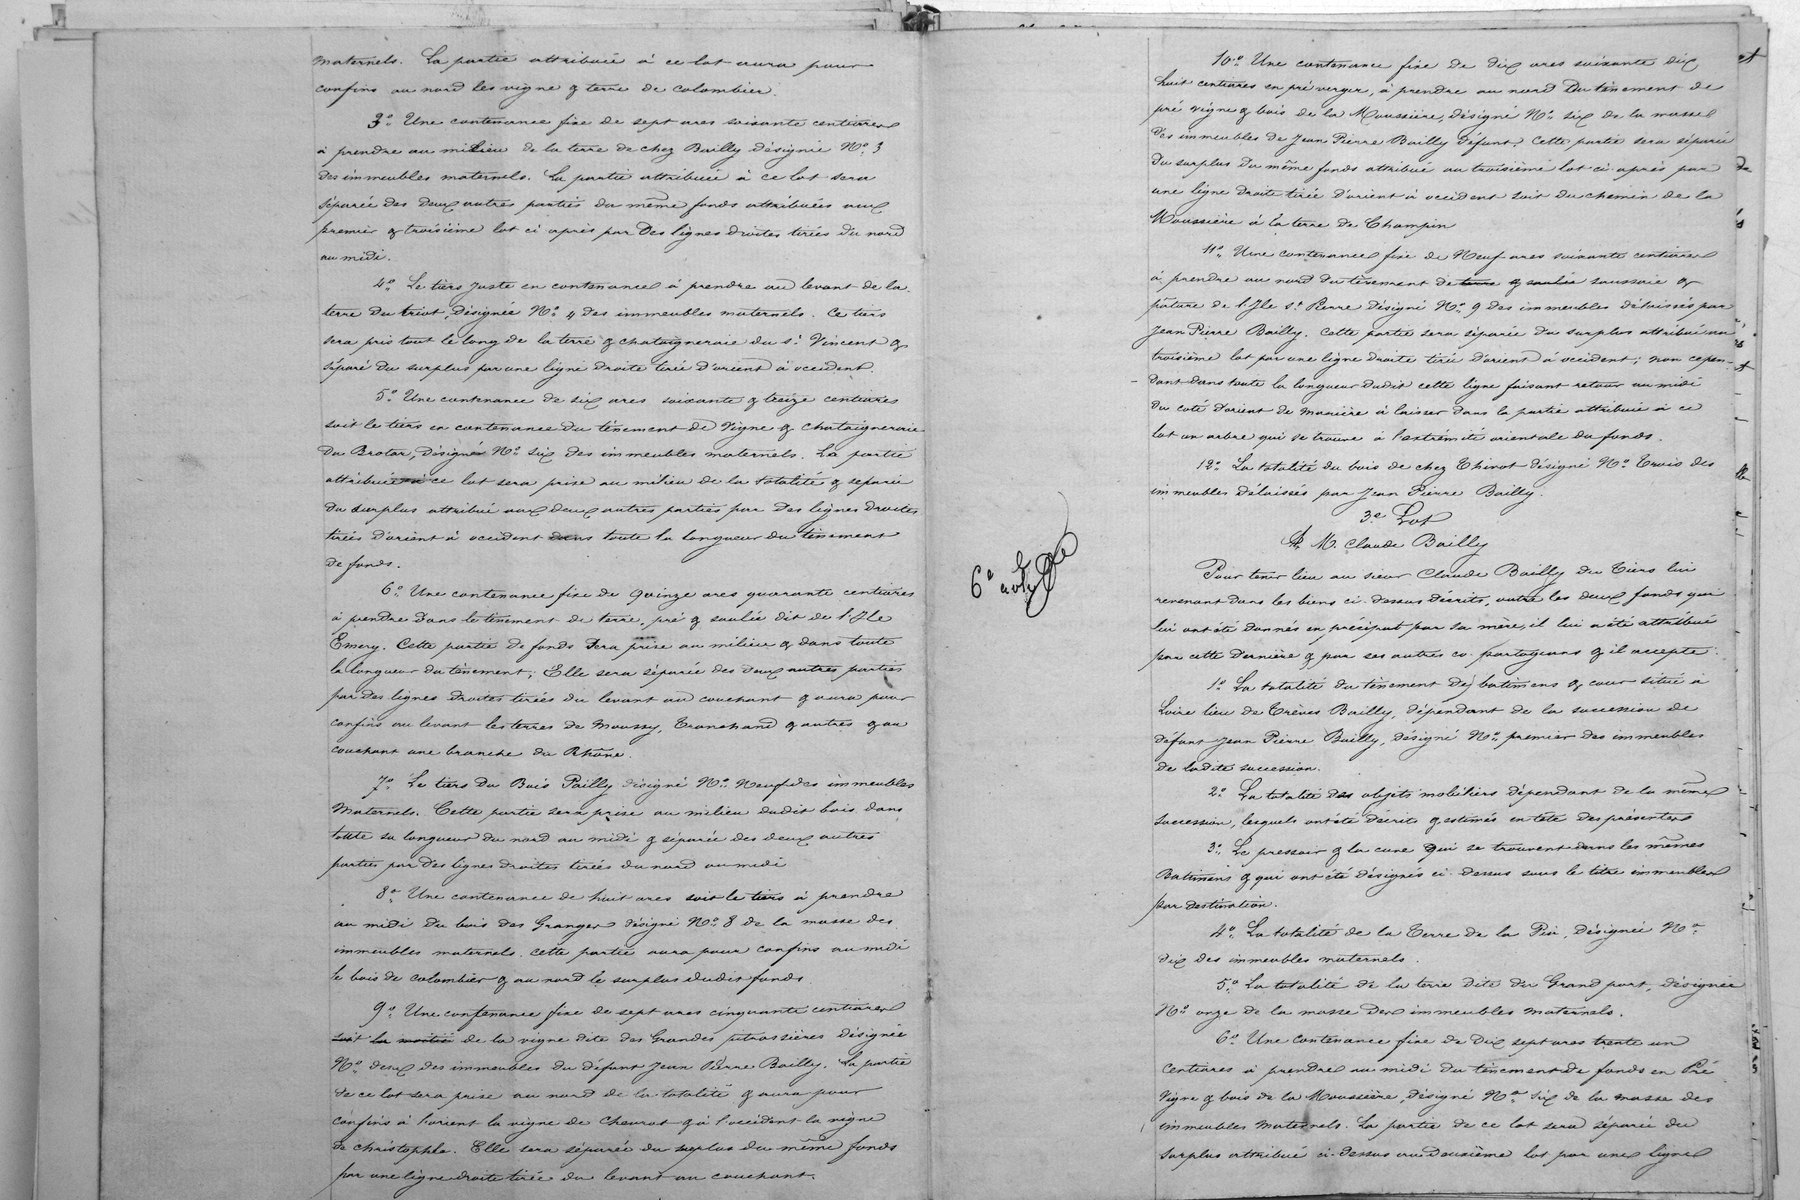 maternels. La partie attribuée à ce lot aura pour
confins au nord les vigne & terre de colombier.
3.° Une contenance fixe de sept ares soixante centiares
à prendre au milieu de la terre de chez Bailly désignée N.° 3
des immeubles maternels. La partie attribuée à ce lot sera
séparée des deux autres parties du même fonds attribuées aux
premier & troisième lot ci après par des lignes droites tirées du nord
au midi.
4.° Le tiers juste en contenance à prendre au levant de la
terre du triot, désignée N.° 4 des immeubles maternels. Ce tiers
sera pris tout le long de la terre & chataigneraie du s.r Vincent &
séparé du surplus par une ligne droite tirée d'orient à occident.
5.° Une contenance de six ares soixante & treize centiares
soit le tiers en contenance du tènement de vigne & chataigneraie
du Brotar, désigné N.° six des immeubles maternels. La partie
attribuée à ce lot sera prise au milieu de la totalité & séparée
du surplus attribué aux deux autres parties par des lignes droites
tirées d'orient à occident dans toute la longueur du tènement
de fonds.
6.° Une contenance fixe de quinze ares quarante centiares
à prendre dans le tènement de terre, pré & saulée dit de l'Ile
Emery. Cette partie de fonds sera prise au milieu & dans toute
la longueur du tènement; Elle sera séparée des deux autres parties
par des lignes droites tirées du levant au couchant & aura pour
confins au levant les terres de Moussy, Tranchand & autres & au
couchant une branche du Rhône.
7.° Le tiers du Bois Pailly désigné N.° Neuf des immeubles
Maternels. Cette partie sera prise au milieu dudit bois dans
toute sa longueur du nord au midi & séparée des deux autres
parties par des lignes droites tirées du nord au midi
8.° Une contenance de huit ares soit le tiers à prendre
au midi du bois des Granges désigné N.° 8 de la masse des
immeubles maternels. cette partie aura pour confins au midi
le bois de colombier & au nord le surplus dudit fonds.
9.° Une contenance fixe de sept ares cinquante centiares
soit la moitié de la vigne dite des Grandes putrassières désignée
N.° deux des immeubles du défunt Jean Pierre Bailly. La partie
de ce lot sera prise au nord de la totalité & aura pour
confins à l'orient la vigne de Chevrot & à l'occident la vigne
de christophle. Elle sera séparée du surplus du même fonds
par une ligne droite tirée du levant au couchant.
6e
10.° Une contenance fixe de dix ares soixante dix
huit centiares en pré verger, à prendre au nord du tènement de
pré vigne & bois de la Moussière, désigné N.° six de la masse
des immeubles de Jean Pierre Bailly défunt. Cette partie sera séparée
du surplus du même fonds attribué au troisième lot ci après par
une ligne droite tirée d'orient à occident soit du chemin de la
Moussière à la terre de Champin
11.° Une contenance fixe de Neuf ares soixante centiares
à prendre au nord du tènement de terre & saulée saussaie &
pâture de l'Ile s.t Pierre désigné N.° 9 des immeubles délaissés par
Jean Pierre Bailly. Cette partie sera séparée du surplus attribué au
troisième lot par une ligne droite tirée d'orient à occident; non cepen-
dant dans toute la longueur dudit cette ligne faisant retour au midi
du coté d'orient de manière à laisser dans la partie attribuée à ce
lot un arbre qui se trouve à l'extrémité orientale du fonds.
12.° La totalité du bois de chez Thinot désigné N.° Trois des
immeubles délaissés par Jean Pierre Bailly.
3.e Lot
A M. Claude Bailly
Pour tenir lieu au sieur Claude Bailly du Tiers lui
revenant dans les biens ci-dessus décrits, outre les deux fonds qui
lui ont été donnés en préciput par sa mère, il lui a été attribué
par cette dernière & par ses autres co-partageans & il accepte:
1.° La totalité du tènement de batimens & cour situé à
Loire lieu de Trèves Bailly, dépendant de la succession de
défunt Jean Pierre Bailly, désigné N.° premier des immeubles
de ladite succession.
2.° La totalité des objets mobiliers dépendant de la même
succession, lesquels ont été décrits & estimés en tête des présentes
3.° Le pressoir & la cuve qui se trouvent dans les mêmes
Batimens & qui ont été désignés ci-dessus sous le titre immeubles
par destination.
4.° La totalité de la Terre de la Pia, désignée N.°
dix des immeubles maternels.
5.° La totalité de la terre dite du Grand port, désignée
N.° onze de la masse des immeubles maternels.
6.° Une contenance fixe de dix sept ares trente un
centiares à prendre au midi du tènement de fonds en Pré
vigne & bois de la Moussière, désigné N.° six de la masse des
immeubles maternels. La partie de ce lot sera séparée du
surplus attribué ci-dessus au deuxième lot par une ligne